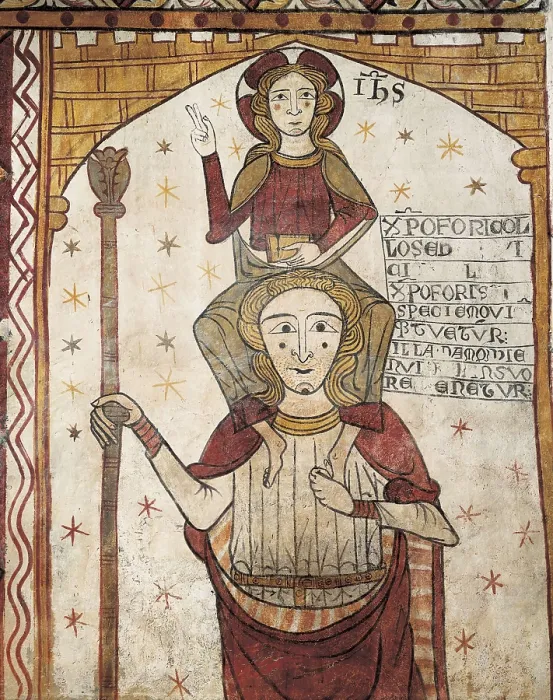 IħS
X̅POFORI COL
LOSED T
CI L
XPOFORIS
SPECIEMQVI
TVETVR:
ILLA NAMQVE
NVSVO
RE ENETVR: